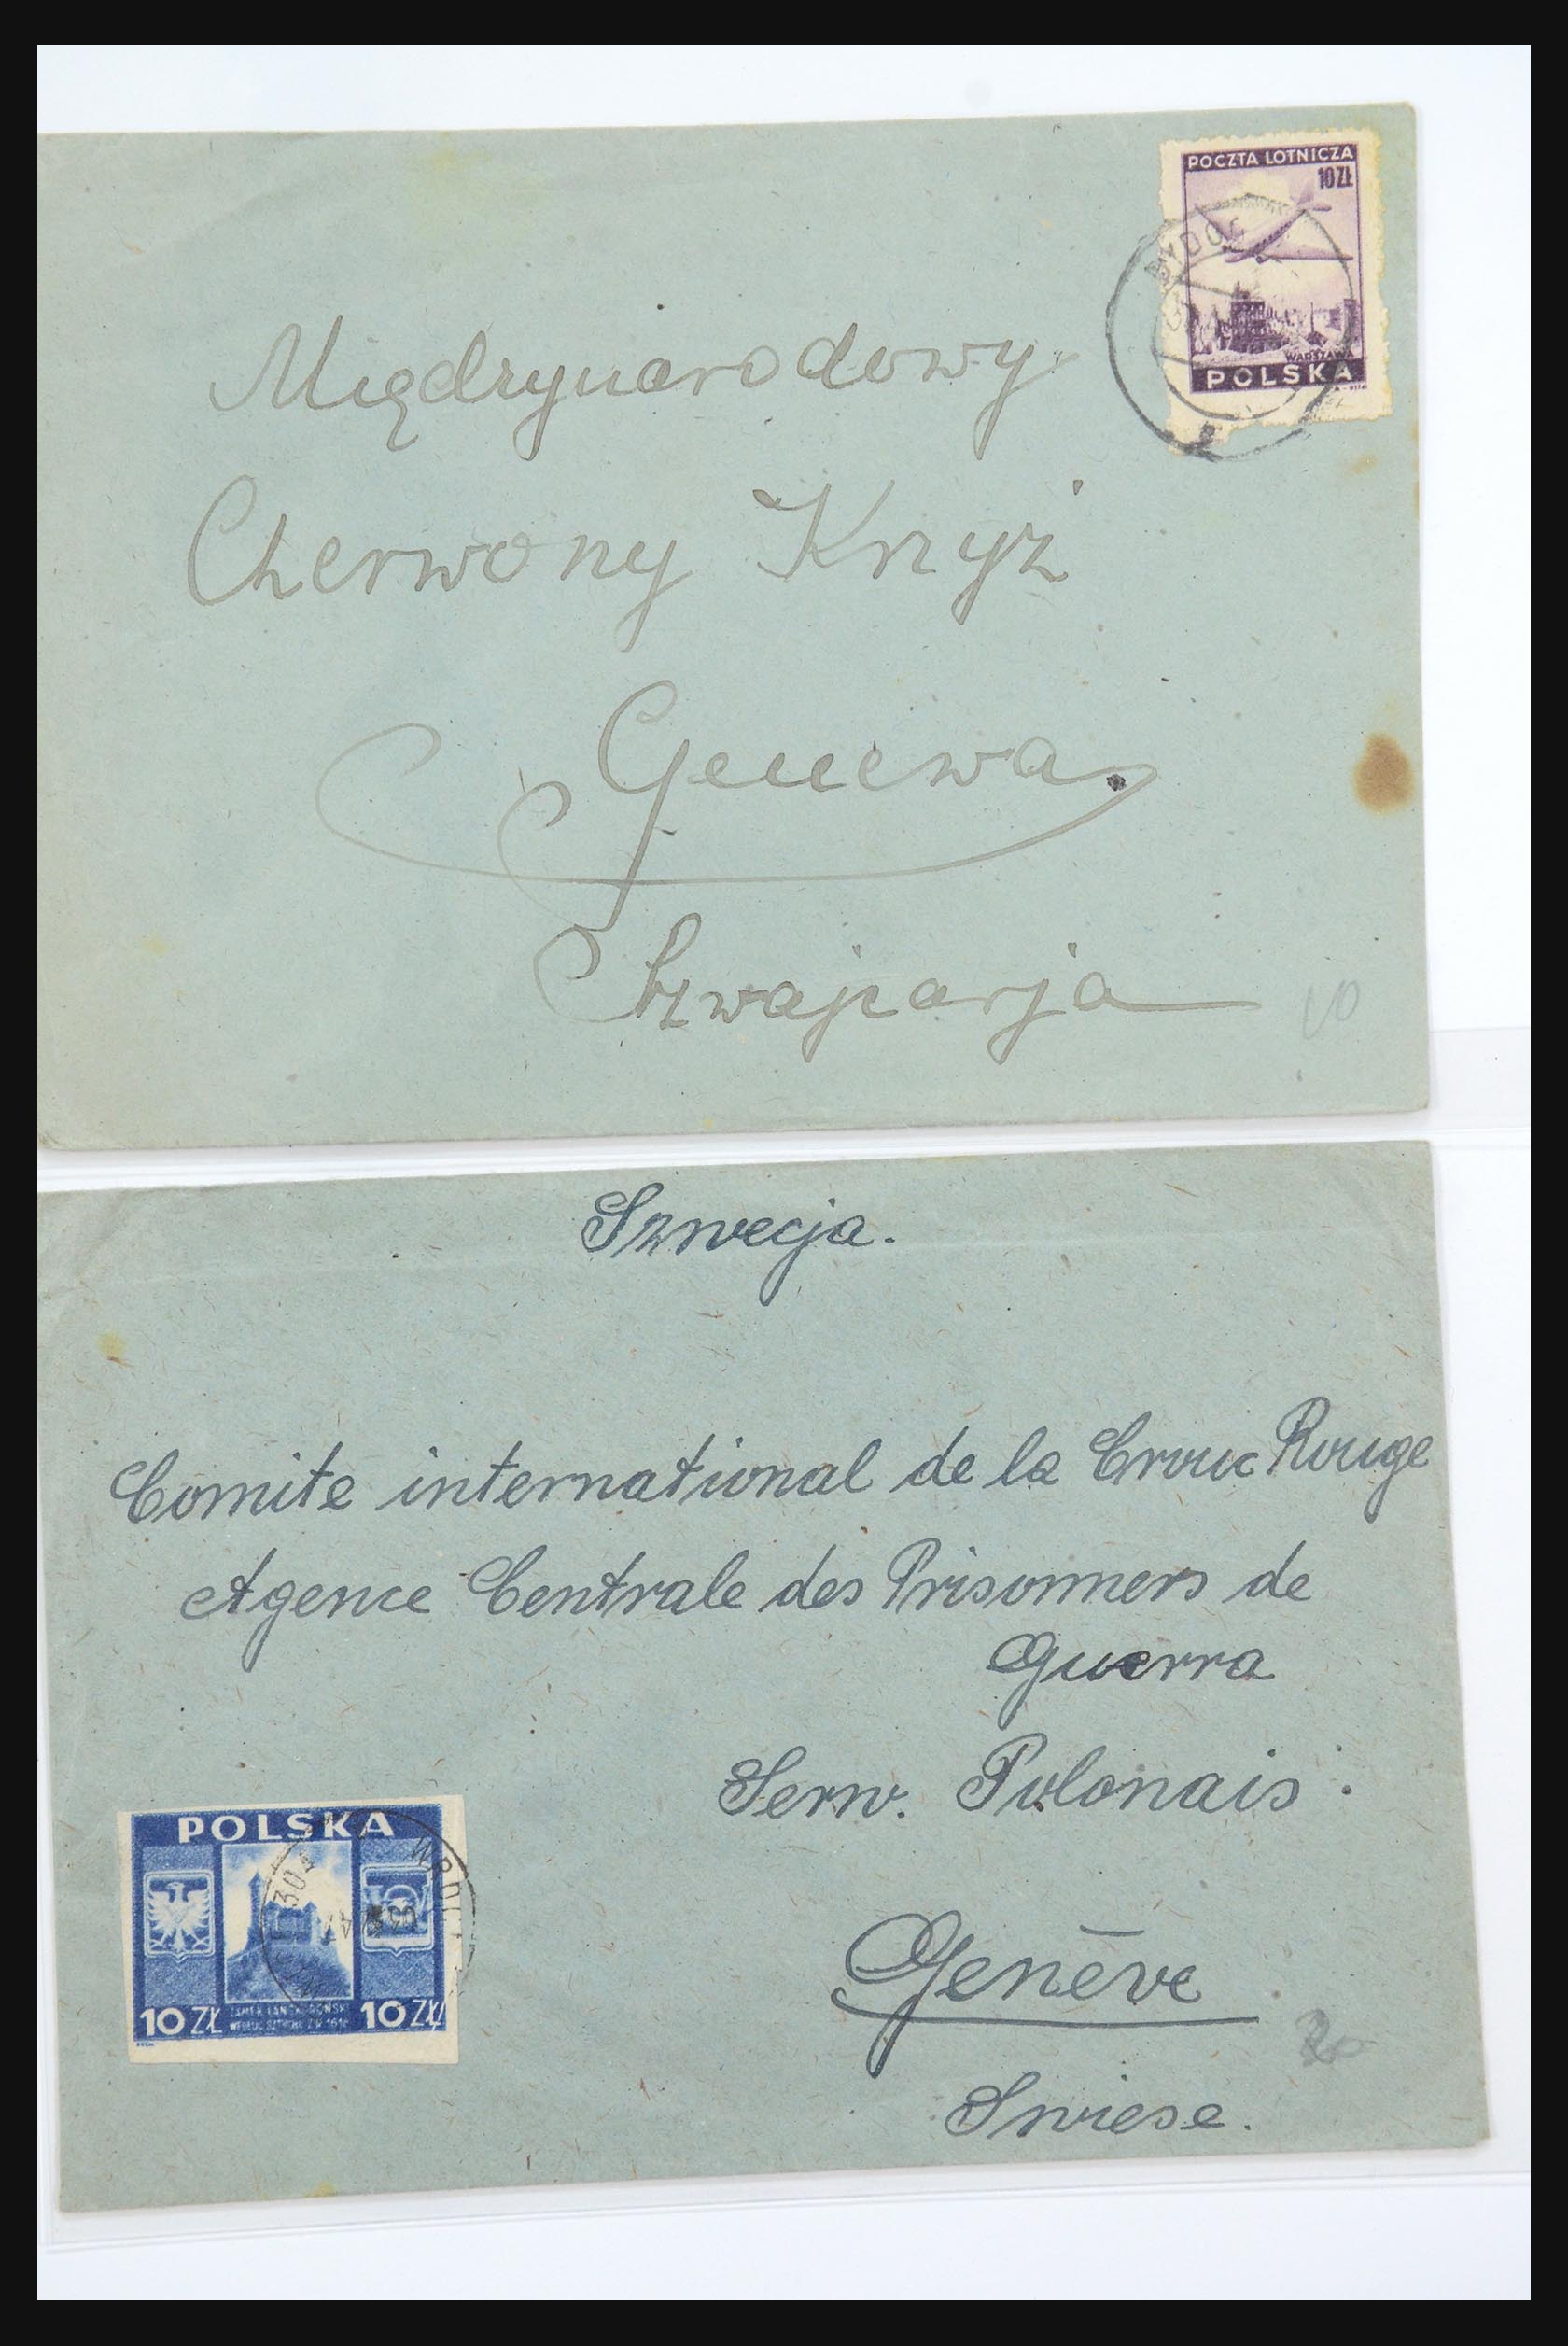 POCZTA LOTNICZA
10 ZŁ
BYDG
WARSZAWA
POLSKA
Międzynarodowy
Czerwony Krzyż
Genewa.
Szwajcarja
Szwecja.
Comite international de la Crouc Rouge
Agence Centrale des Prisonners de
Guerra
Serw. Polonais.
POLSKA
10 ZŁ 10 ZŁ
Genēve
Swiese.